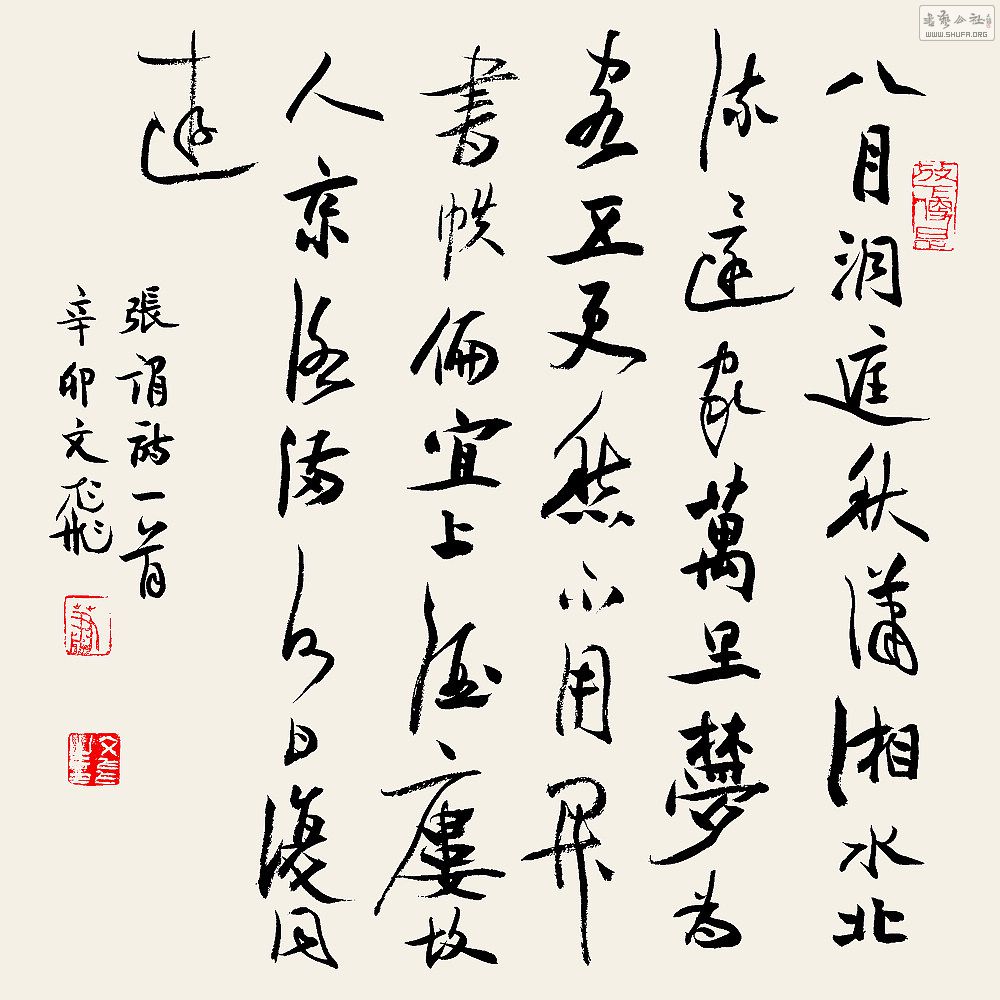 八月洞庭秋瀟湘水北
流還家萬里夢為
客五更愁不用開
書帙偏宜上酒廔故
人京洛滿何日復同
遊
張謂詩一首
辛卯文飛
书艺公社
WWW.SHUFA.ORG